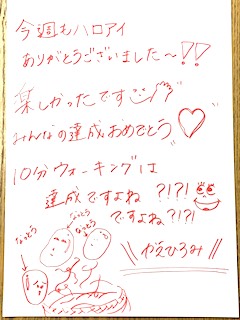 今週もハロアイ
ありがとうございました〜!!
楽しかったです
みんなの達成おめでとう
10分ウォーキングは
達成ですよね?!?!
ですよね?!?!
なっとう
なっとう
なっとう
\\かえひろみ//